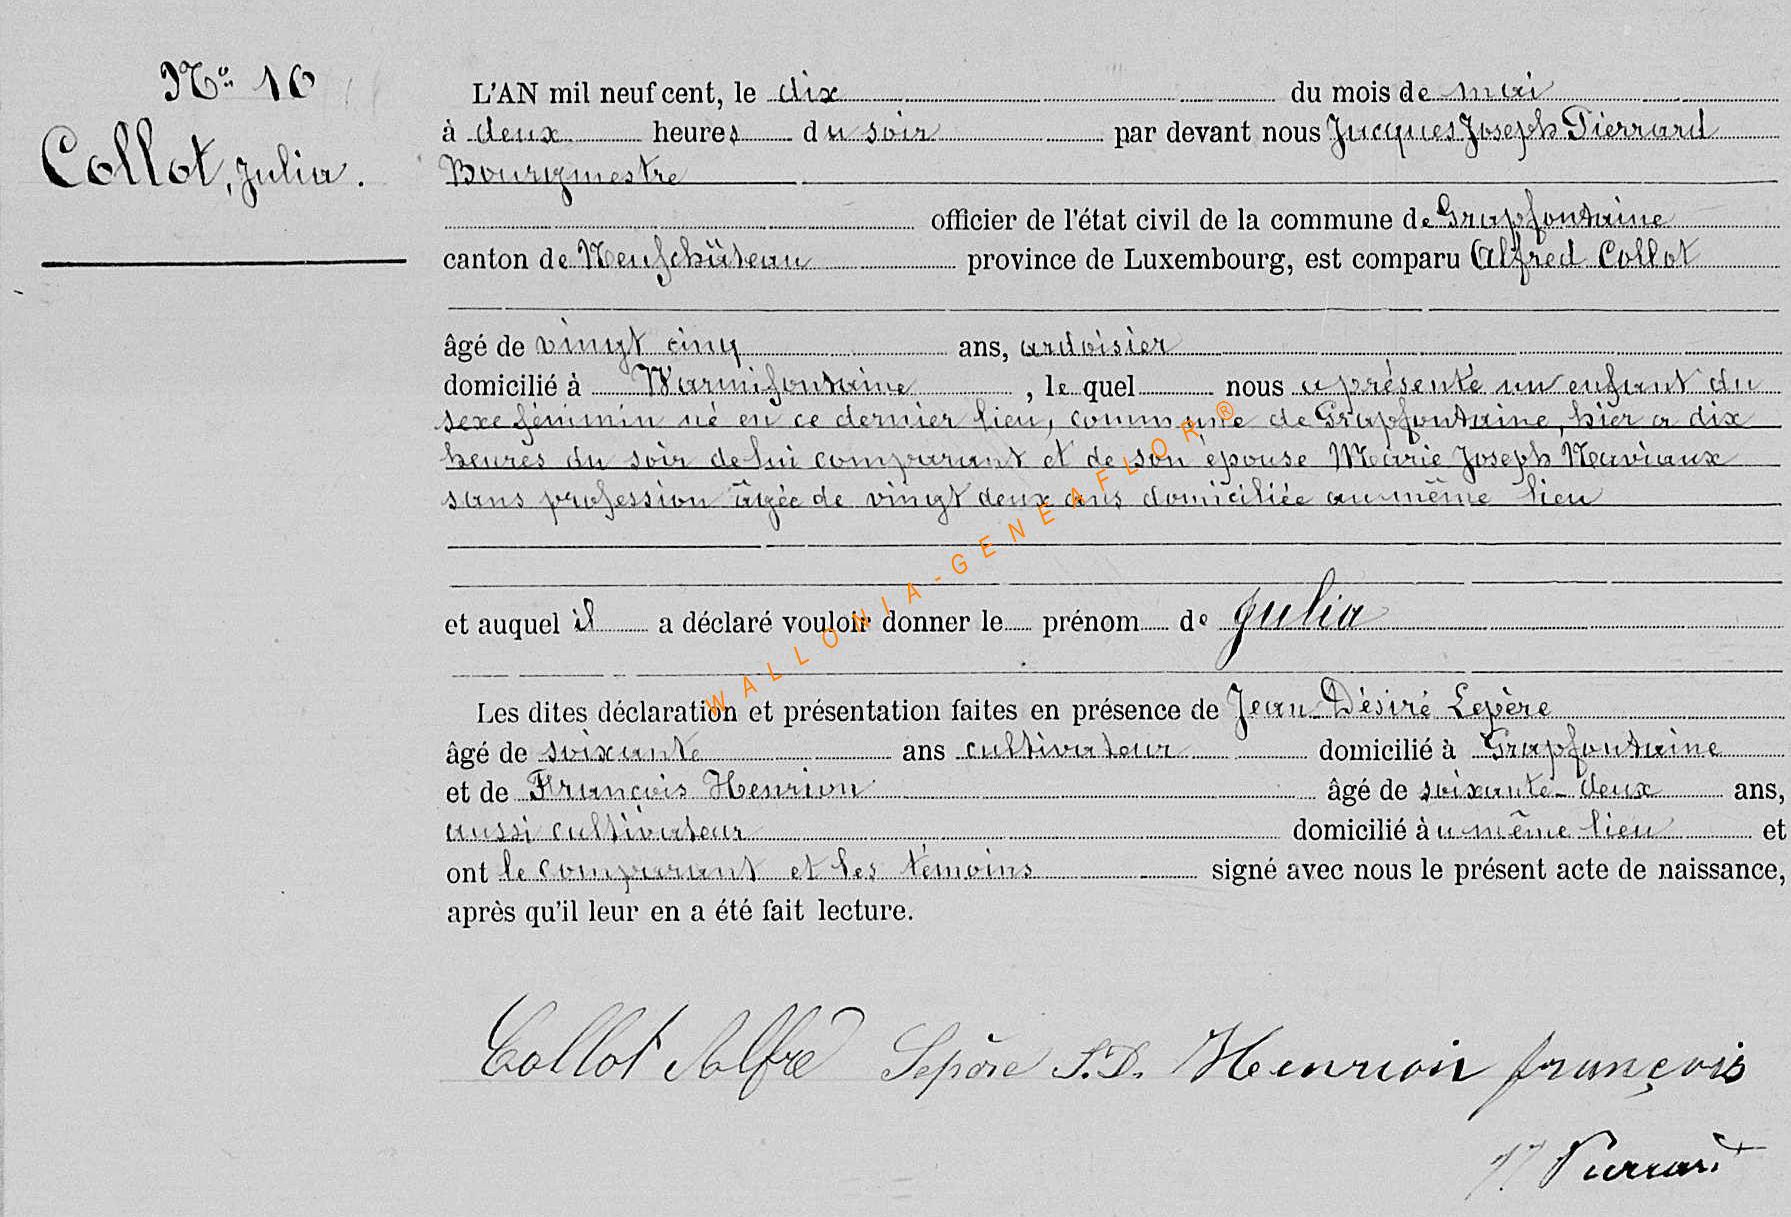 No 10
Collot, Julia.
L'AN mil neuf cent, le dix du mois de mai
à deux heures du soir par devant nous Jacques Joseph Pierrard
Bourgmestre
officier de l'état civil de la commune de Grapfontaine
canton de Neufchâteau province de Luxembourg, est comparu Alfred Collot
âgé de vingt cinq ans, ardoisier
domicilié à Warmifontaine, le quel nous a présenté un enfant du
sexe féminin né en ce dernier lieu, commune de Grapfontaine, hier a dix
heures du soir de lui comparant et de son épouse Marie Joseph Naviaux
sans profession âgée de vingt deux ans domiciliée au même lieu
et auquel il a déclaré vouloir donner le prénom de Julia
Les dites déclaration et présentation faites en présence de Jean Désiré Lepère
âgé de soixante ans cultivateur domicilié à Grapfontaine
et de François Henrion âgé de soixante-deux ans,
aussi cultivateur domicilié au même lieu et
ont le comparant et les témoins signé avec nous le présent acte de naissance,
après qu'il leur en a été fait lecture.
Collot Alfred Lepère J.D. Henrion françois
JJ Pierrard
WALLONIA-GENEAFLOR®